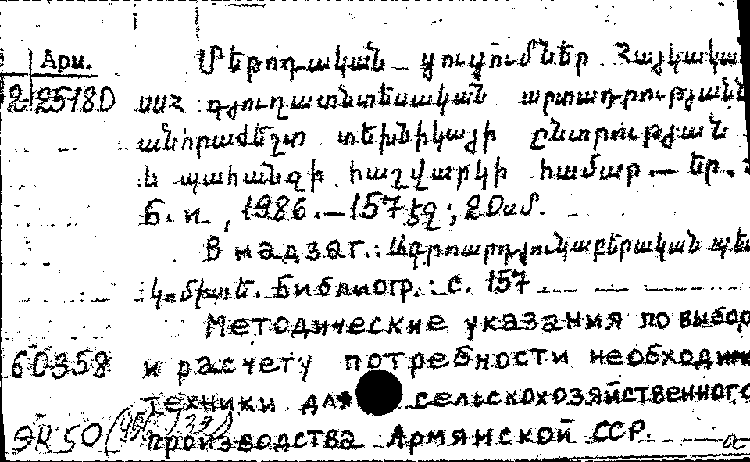 Арм.
2-25180
Մեթոդական ցուցումներ Հայկական
ՍՍՀ գյուղատնտեսական արտադրության
անհրաժեշտ տեխնիկայի ընտրության
և պահանջի հաշվարկի համար.— Եր.
Б. и., 1986.—157 էջ; 20սմ.
В надзаг.: Ագրոարդյունաբերական պետ
կոմիտե. Библиогр.: с. 157
Методические указания по выбор
60358 и расчету потребности необходим
техники для сельскохозяйственного
производства Армянской ССР.